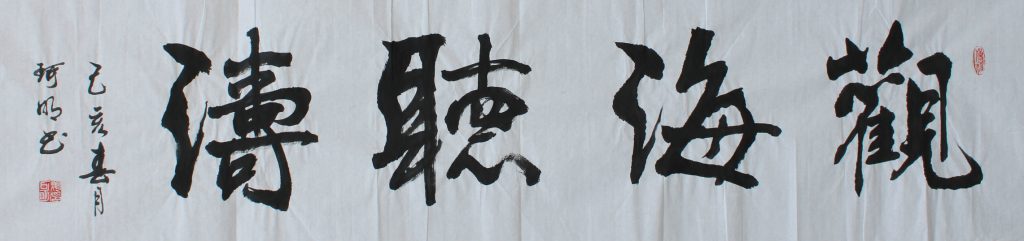 觀海聽濤
己亥春月
珂明书